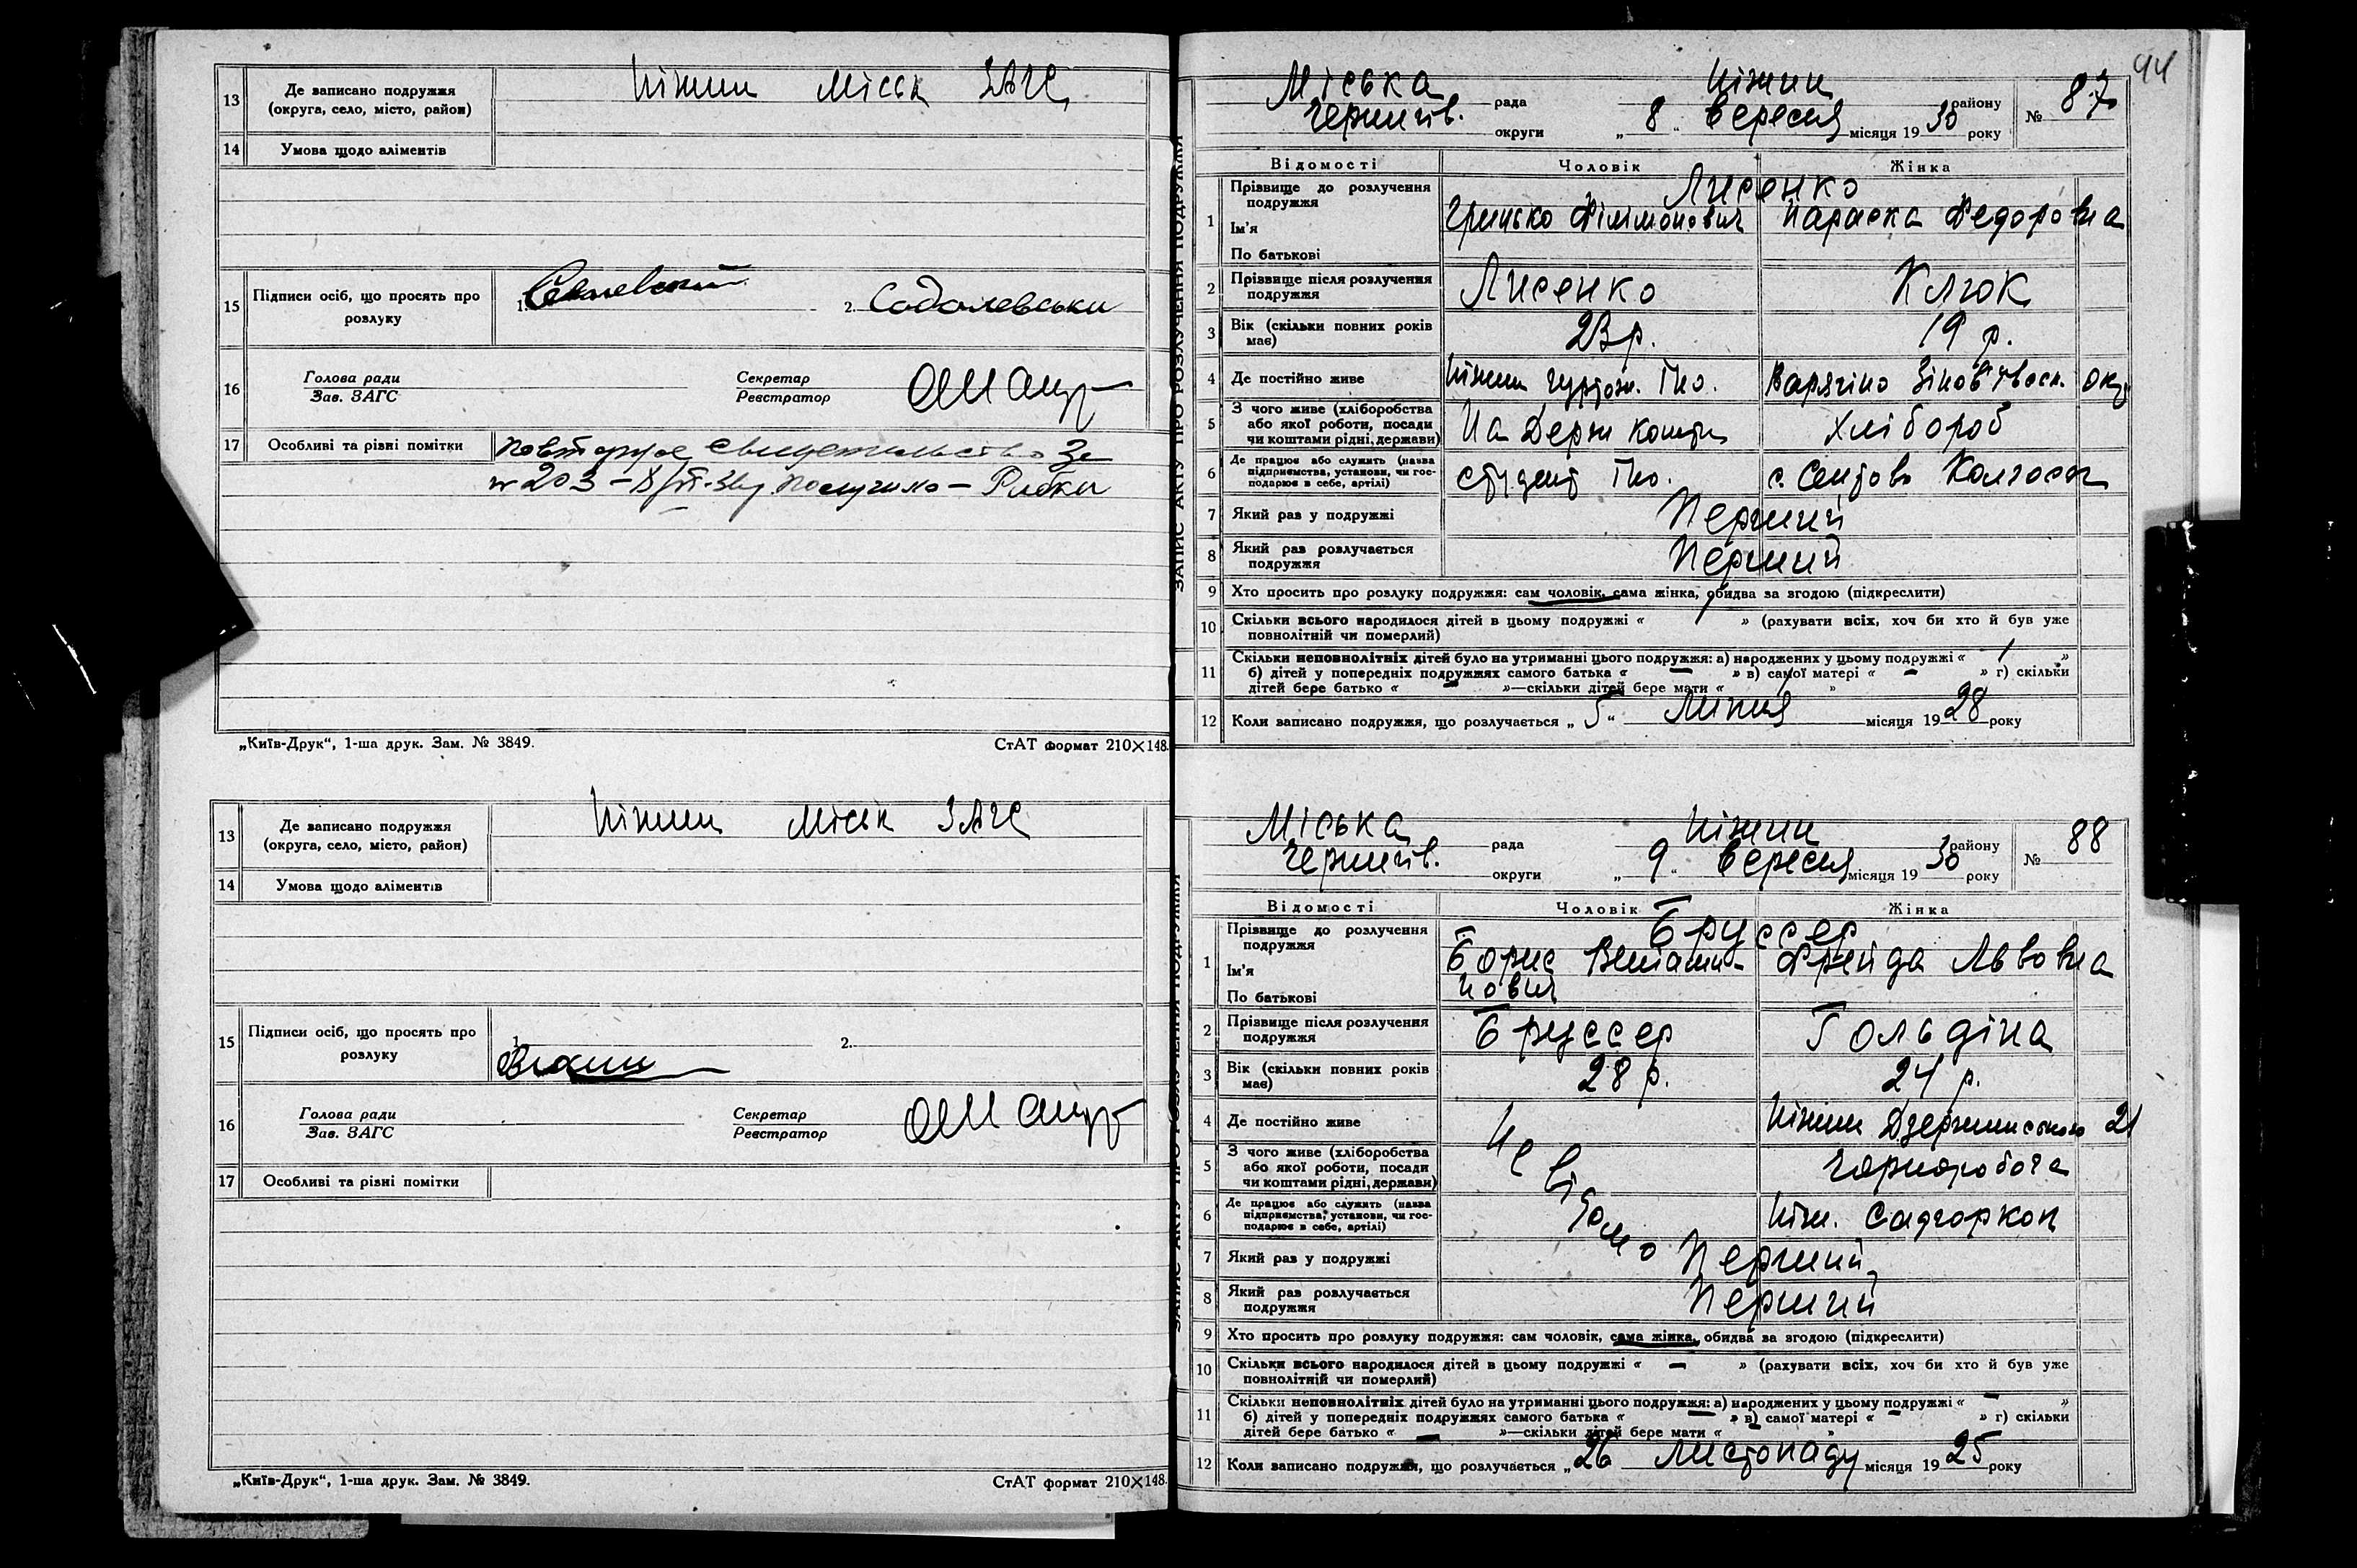 13 Де записано подружжя
(округа, село, місто, район)
Ніжин Міськ ЗАГС
14 Умова щодо аліментів
15 Підписи осіб, що просять про
розлуку
1. 2.
16 Голова ради
Зав. ЗАГС
Секретар
Реєстратор
17 Особливі та різні помітки
Повторное свидетельство За
№ 203
„Київ-Друк“, 1-ша друк. Зам. № 3849. СтАТ формат 210×148.
13 Де записано подружжя
(округа, село, місто, район)
Ніжин Міськ ЗАГС
14 Умова щодо аліментів
15 Підписи осіб, що просять про
розлуку
1. 2.
16 Голова ради
Зав. ЗАГС
Секретар
Реєстратор
17 Особливі та різні помітки
„Київ-Друк“, 1-ша друк. Зам. № 3849. СтАТ формат 210×148.
ЗАПИС АКТУ ПРО РОЗЛУЧЕННЯ ПОДРУЖЖЯ
94
Міська рада Ніжин району № 87
Чернигів. округи „ 8 “ вересня місяця 1930 року
Відомості Чоловік Жінка
1 Прізвище до розлучення
подружжя
Лисенко
Ім'я
Грицько Філімонович Параска Федоровна
По батькові
2 Прізвище після розлучення
подружжя
Лисенко Клюк
3 Вік (скільки повних років
має)
23 р. 19 р.
4 Де постійно живе
Ніжин гуртож. Іно.
5 З чого живе (хліборобства
або якої роботи, посади
чи коштами рідні, держави)
На Держ кошти хлібороб
6 Де працює або служить (назва
підприємства, установи, чи гос-
подарює в себе, артілі)
студент Іно.
7 Який раз у подружжі
Перший
8 Який раз розлучається
подружжя
Перший
9 Хто просить про розлуку подружжя: сам чоловік, сама жінка, обидва за згодою (підкреслити)
10 Скільки всього народилося дітей в цьому подружжі « 1 » (рахувати всіх, хоч би хто й був уже
повнолітній чи померлий)
11 Скільки неповнолітніх дітей було на утриманні цього подружжя: а) народжених у цьому подружжі « 1 »
б) дітей у попередніх подружжях самого батька « — » в) самої матері « — » г) скільки
дітей бере батько « — »—скільки дітей бере мати « 1 »
12 Коли записано подружжя, що розлучається „ 5 “ Липня місяця 1928 року
ЗАПИС АКТУ ПРО РОЗЛУЧЕННЯ ПОДРУЖЖЯ
Міська рада Ніжин району № 88
Чернигів. округи „ 9 “ вересня місяця 1930 року
Відомості Чоловік Жінка
1 Прізвище до розлучення
подружжя
Бруссер
Ім'я
Борис Веніами- Фрейда Львовна
По батькові
нович
2 Прізвище після розлучення
подружжя
Бруссер Гольдіна
3 Вік (скільки повних років
має)
28 р. 24 р.
4 Де постійно живе
Невідомо
Ніжин Дзержинського 21
5 З чого живе (хліборобства
або якої роботи, посади
чи коштами рідні, держави)
чорноробоча
6 Де працює або служить (назва
підприємства, установи, чи гос-
подарює в себе, артілі)
Ніж. Садгоркоп
7 Який раз у подружжі
Перший
8 Який раз розлучається
подружжя
Перший
9 Хто просить про розлуку подружжя: сам чоловік, сама жінка, обидва за згодою (підкреслити)
10 Скільки всього народилося дітей в цьому подружжі « — » (рахувати всіх, хоч би хто й був уже
повнолітній чи померлий)
11 Скільки неповнолітніх дітей було на утриманні цього подружжя: а) народжених у цьому подружжі « — »
б) дітей у попередніх подружжях самого батька « — » в) самої матері « — » г) скільки
дітей бере батько « — »—скільки дітей бере мати « »
12 Коли записано подружжя, що розлучається „ 26 Листопаду місяця 1925 року